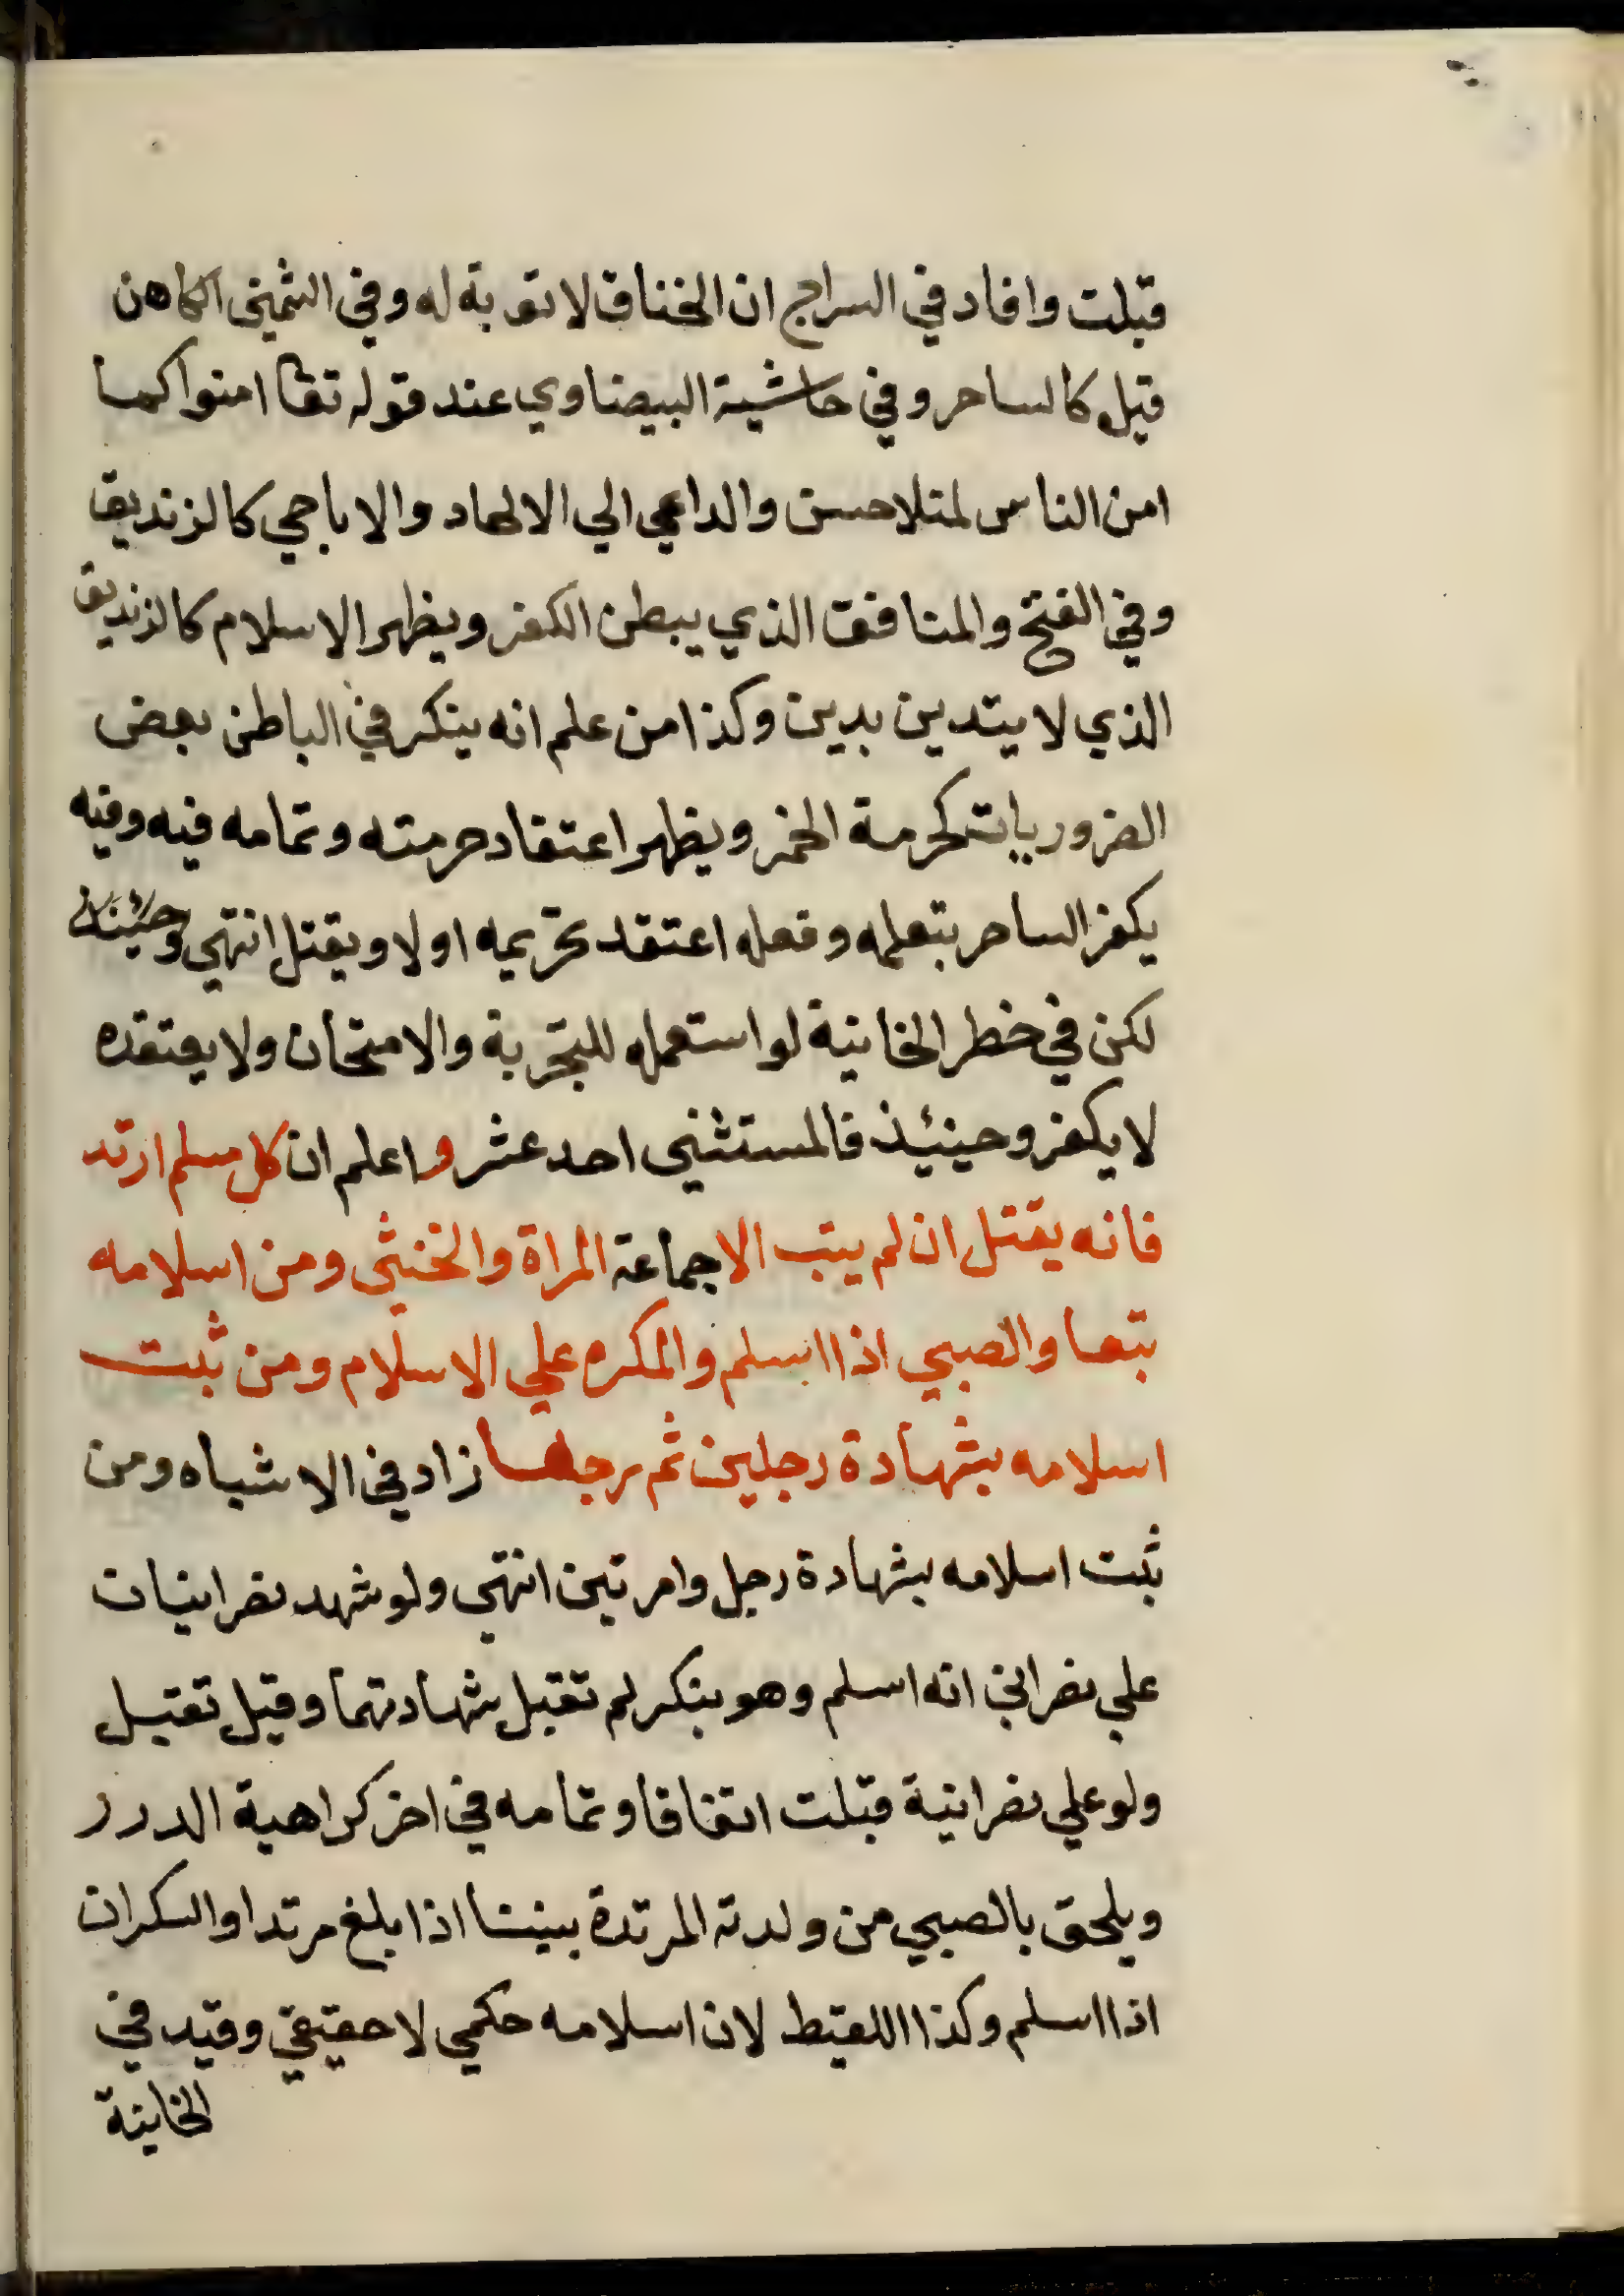 قبلت وافاد في السراج ان الخناق لا توبة له وفي الشمني الكاهن
قيل كالساحر وفي حاشية البيضاوي عند قوله تعا امنوا كما
امن الناس لمنلا حسن والداعي الي الالحاد والاباحي كالزنديق
وفي الفتح والمنافق الذي يبطن الكفر ويظهر الاسلام كالزنديق
الذي لا يتدين بدين وكذا من علم انه ينكر في الباطن بعض
الضروريات كحرمة الخمر ويظهر اعتقاد حرمته وتمامه فيه وفيه
يكفر الساحر بتعلمه وفعله اعتقد تحريمه اولا ويقتل انتهي
لكن في خطر الخانية لو استعمله للتجربة والامتحان ولا يعتقده
لا يكفر وحينئذ فالمستثني احد عشر واعلم ان كل مسلم ارتد
فانه يقتل ان لم يتب الا جماعة المراة والخنثي ومن اسلامه
تبعا والصبي اذا اسلم والمكره علي الاسلام ومن ثبت
اسلامه بشهادة رجلين ثم رجعا زاد في الاشباه ومن
ثبت اسلامه بشهادة رجل وامرتين انتهي ولو شهد نصرانيان
علي نصراني انه اسلم وهو ينكر لم تقبل شهادتهما وقيل تقبل
ولو علي نصرانية قبلت اتفاقا وتمامه في اخر كراهية الدرر
ويلحق بالصبي من ولدته المرتدة بيننا اذا بلغ مرتدا والسكران
اذا اسلم وكذا اللقيط لان اسلامه حكمي لا حقيقي وقيد في
الخانية